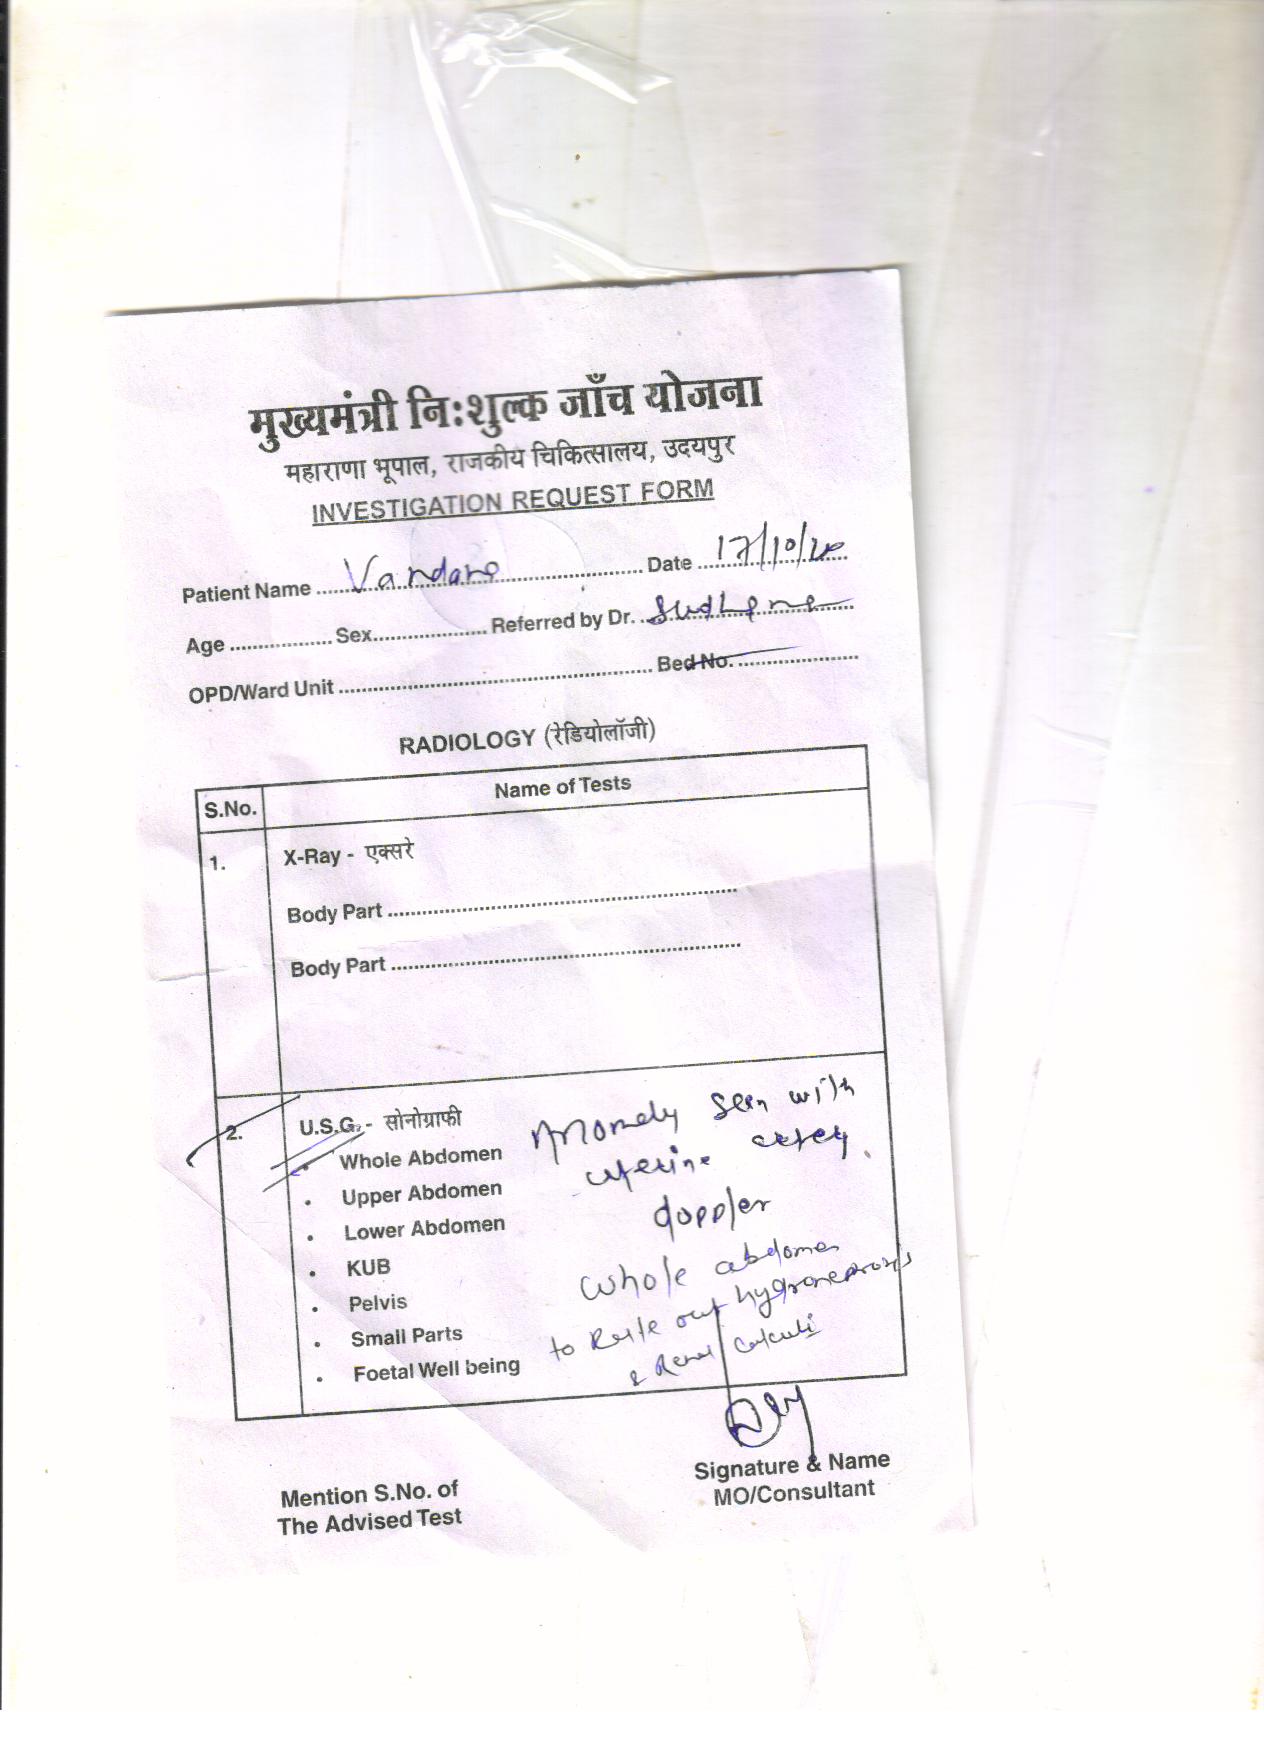 मुख्यमंत्री निःशुल्क जाँच योजना
महाराणा भूपाल, राजकीय चिकित्सालय, उदयपुर
INVESTIGATION REQUEST FORM
Patient Name Vandana Date 17/10/20
Age Sex Referred by Dr.
OPD/Ward Unit Bed No.
RADIOLOGY (रेडियोलॉजी)
S.No. Name of Tests
1. X-Ray - एक्सरे
Body Part
Body Part
2. U.S.G. - सोनोग्राफी
• Whole Abdomen
• Upper Abdomen
• Lower Abdomen
• KUB
• Pelvis
• Small Parts
• Foetal Well being
Anomely seen with
uterine artery
doppler
Whole abdomen
to Rule out hydronephrosis
& Renal Calculi
Signature & Name
MO/Consultant
Mention S.No. of
The Advised Test